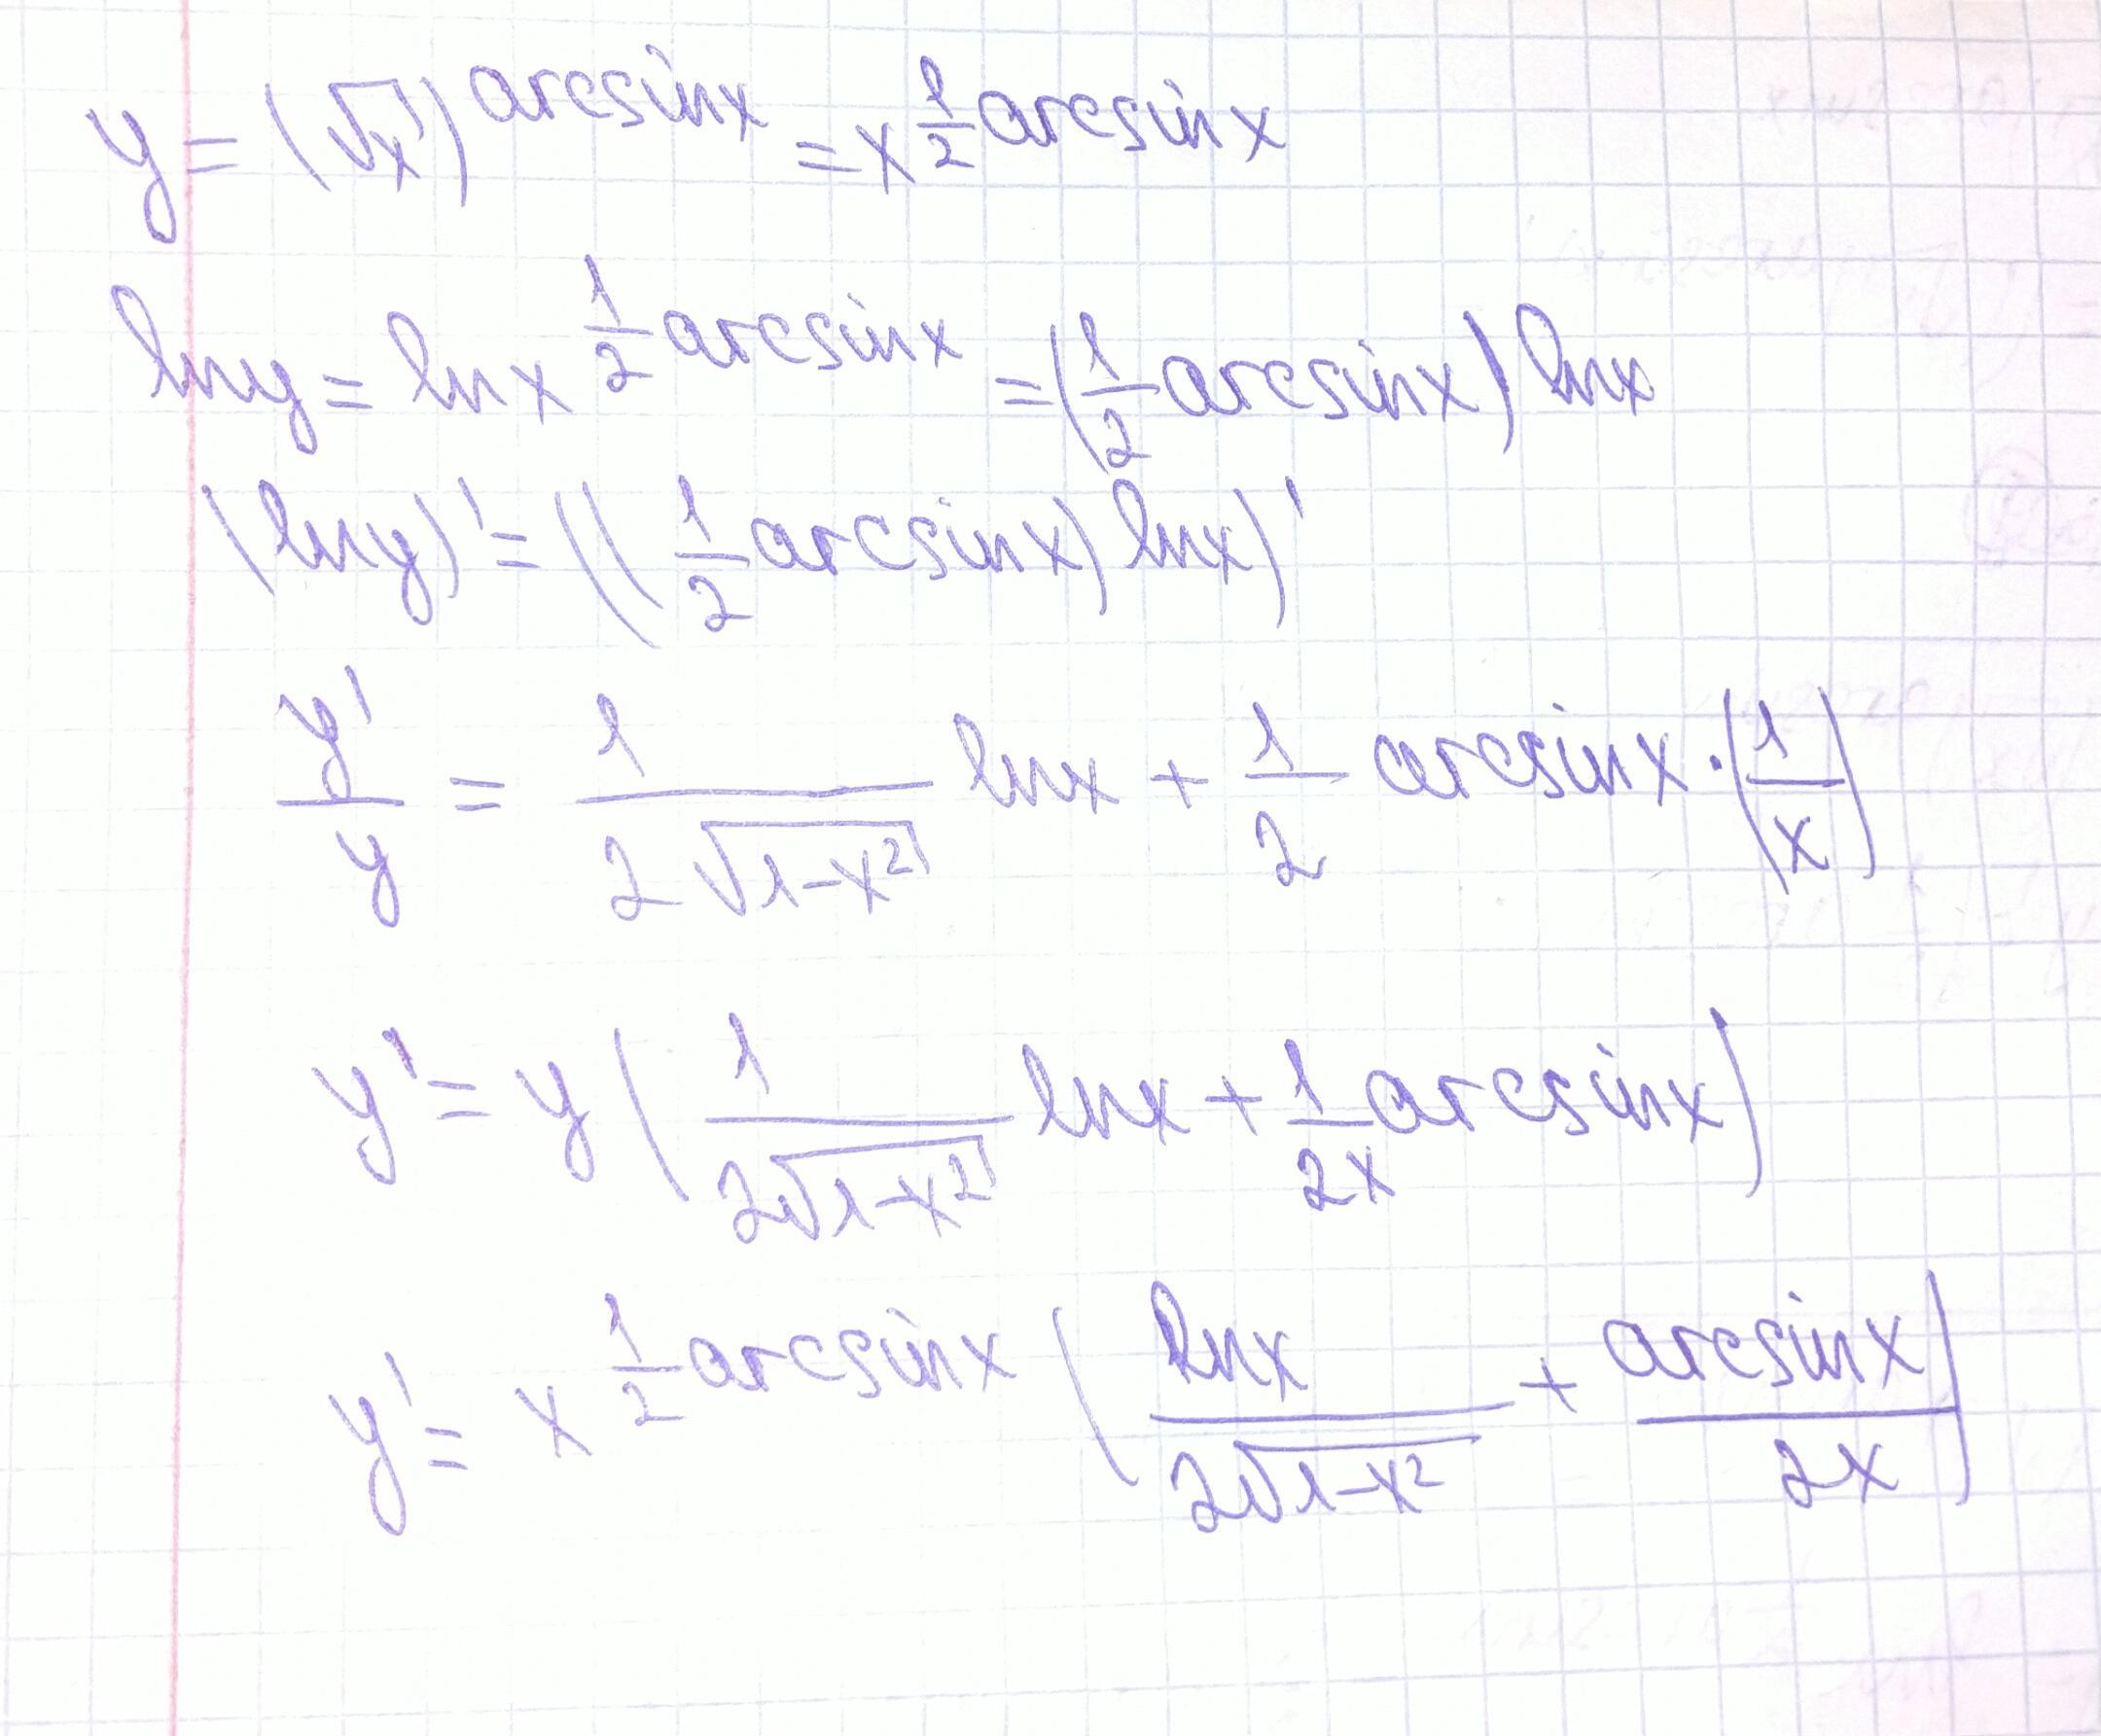 y = (√x)^arcsinx = x^(1/2 arcsinx)
lny = lnx^(1/2 arcsinx) = (1/2 arcsinx) lnx
(lny)' = ((1/2 arcsinx) lnx)'
y'/y = 1/(2√(1-x²)) lnx + 1/2 arcsinx · (1/x)
y' = y (1/(2√(1-x²)) lnx + 1/(2x) arcsinx)
y' = x^(1/2 arcsinx) (lnx/(2√(1-x²)) + arcsinx/(2x))